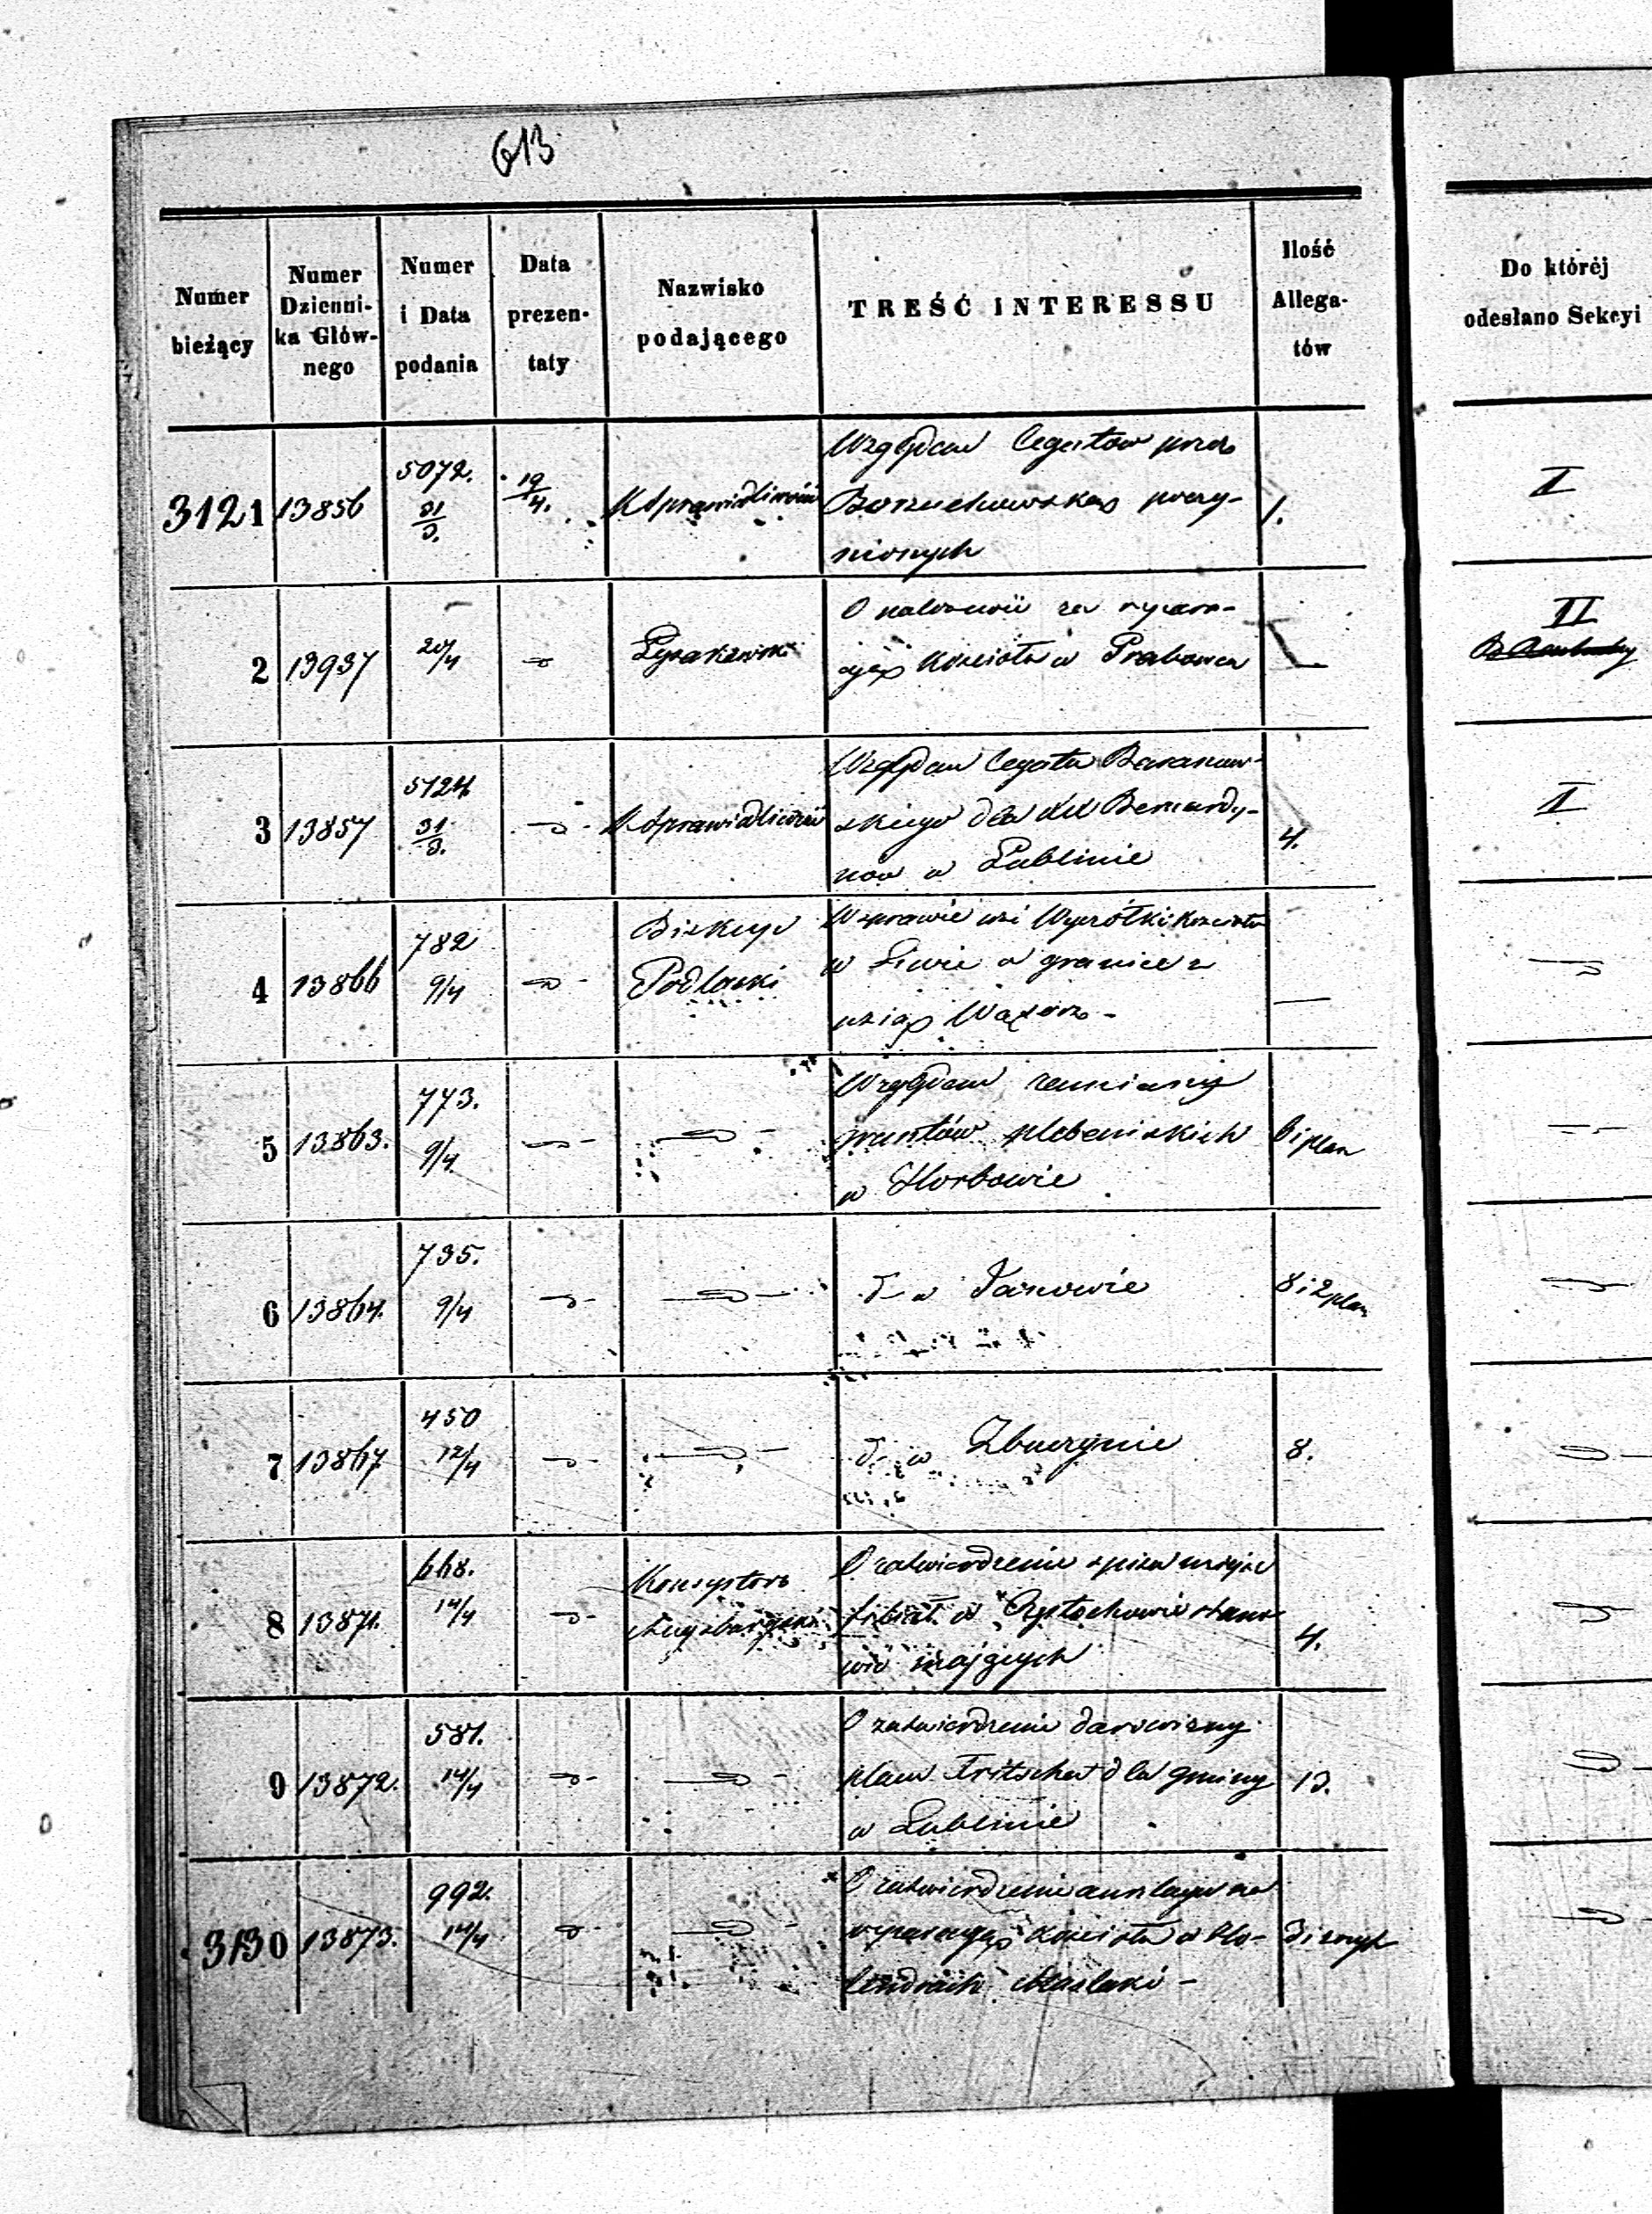 613
Numer bieżący
Numer Dzienni-ka Głów-nego
Numer i Data podania
Data prezen-taty
Nazwisko podającego
TREŚĆ INTERESSU
Ilość Allega-tów
Do któréj odesłano Sekcyi
3121 13856 5072. 31/3. 19/4. K Sprawiedliwości
Względem legatów przez
poczy-
nionych
1.
I
2 13937 20/4
O
Kościoła w
—
II
3 13857 5124 31/3. K Sprawiedliwości
Względem legatu Baranow-
skiego dla XX Bernardy-
nów w Lublinie
4.
I
4 13866 782 9/4 Biskup Podlaski
W sprawie wsi Wyrółki Kościoła
w Liwie o granice z
wsią
—
5 13863. 773. 9/4
Względem zamiany
gruntów plebańskich
w Horbowie
6 i plan
6 13864. 735. 9/4
d-o w Janowie
8 i 2 plan
7 13867 450 12/4
d-o w Zbuczynie
8.
8 13871. 668. 14/4 Konsystorz Augsburgski
O zatwierdzenie spisu
w Częstochowie
mających
4.
9 13872. 581. 14/4
O zatwierdzenie darowizny
placu Fritsche dla gminy
w Lublinie
13.
3130 13873. 992. 14/4
O zatwierdzenie anszlagu na
reparacyą Kościoła w Ho-
lendrach